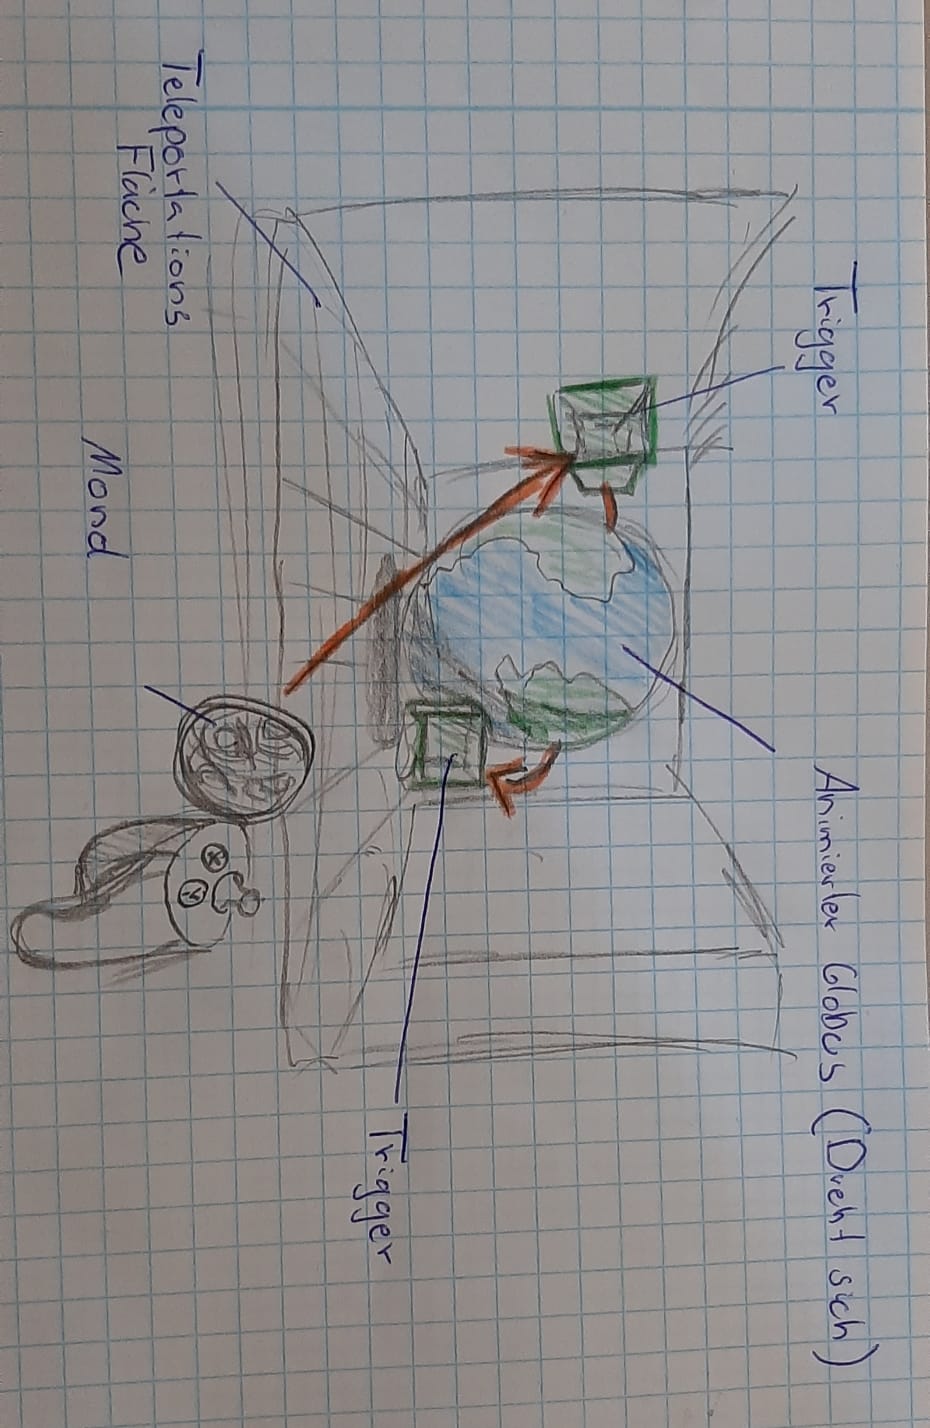 Trigger
Animierter Globus (Dreht sich)
Trigger
Teleportations
Fläche
Mond